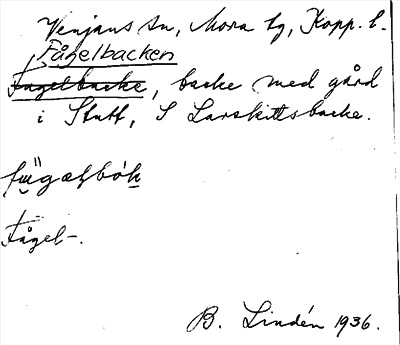 Venjans sn, Mora tg, Kopp. l.
Fågelbacken
Fågelbacke, backe med gård
i Stutt, S Larskittsbacke.
Fågel-.
B. Lindén 1936.